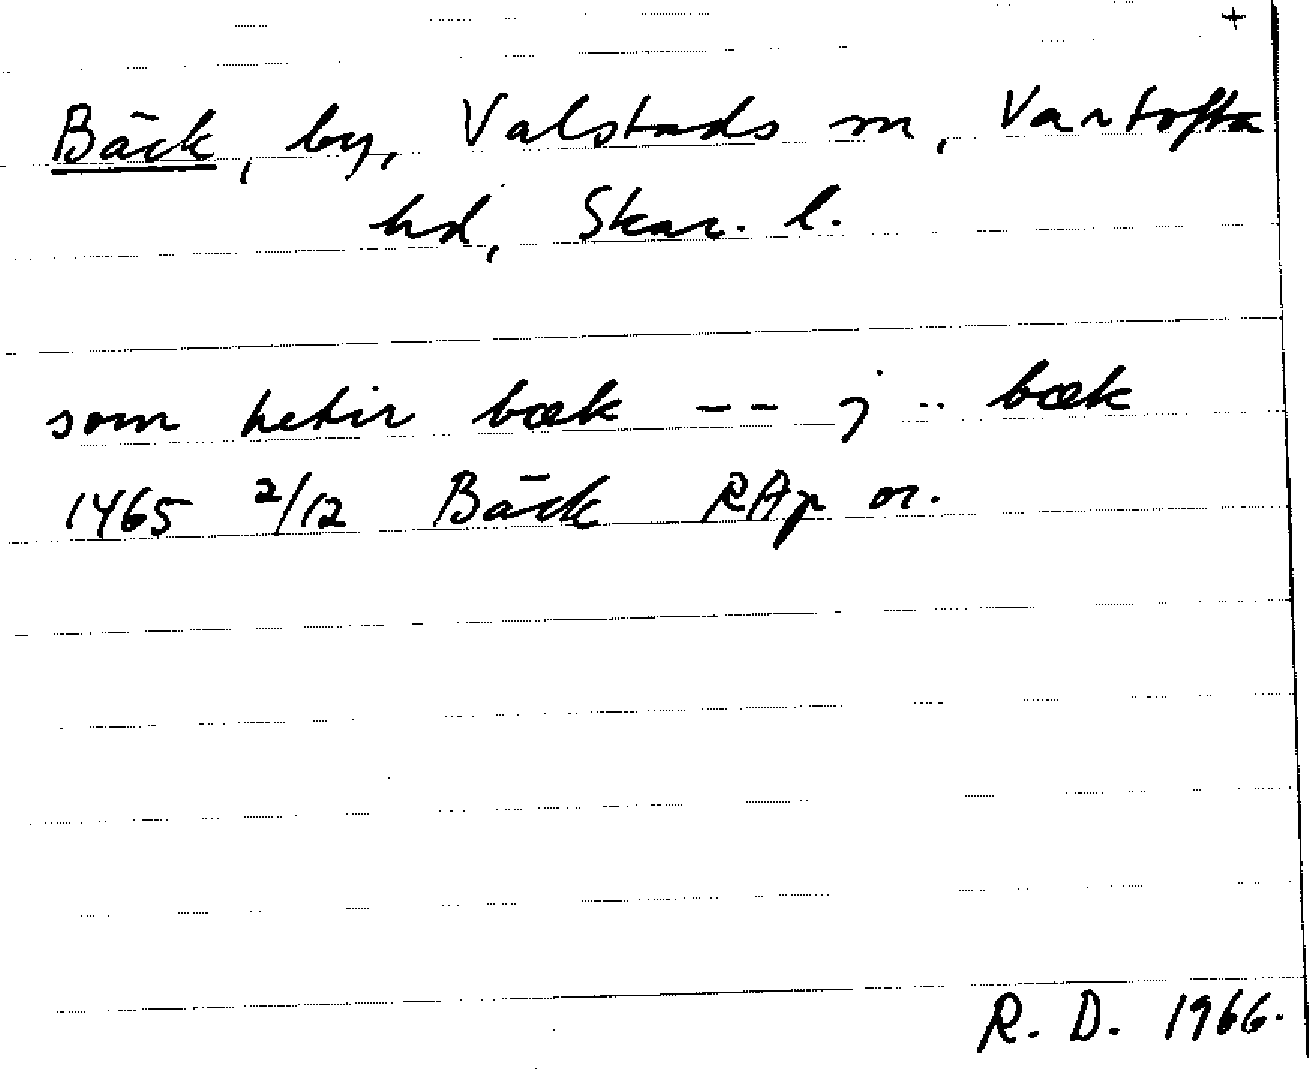 +
Bäck, by, Valstads sn, Vartofta
hd, Skar. l.
som hetir bæk -- j -- bæk
1465 2/12 Bäck RAp or.
R. D. 1966.